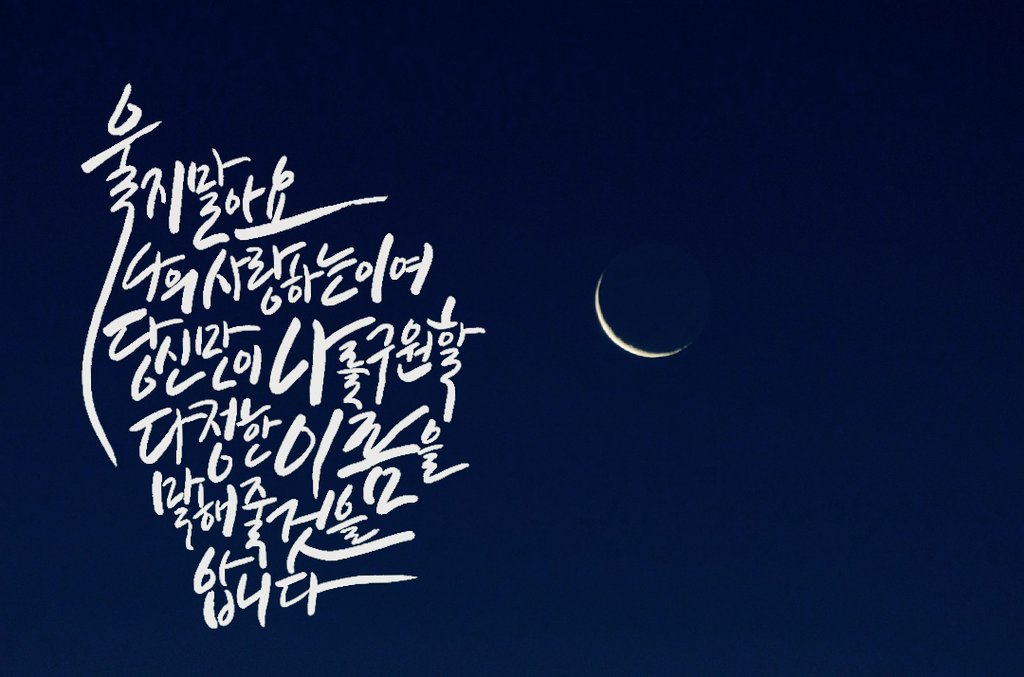 울지말아요
나의 사랑하는이여
당신만이 나를구원할
다정한 이름을
말해줄것을
압니다